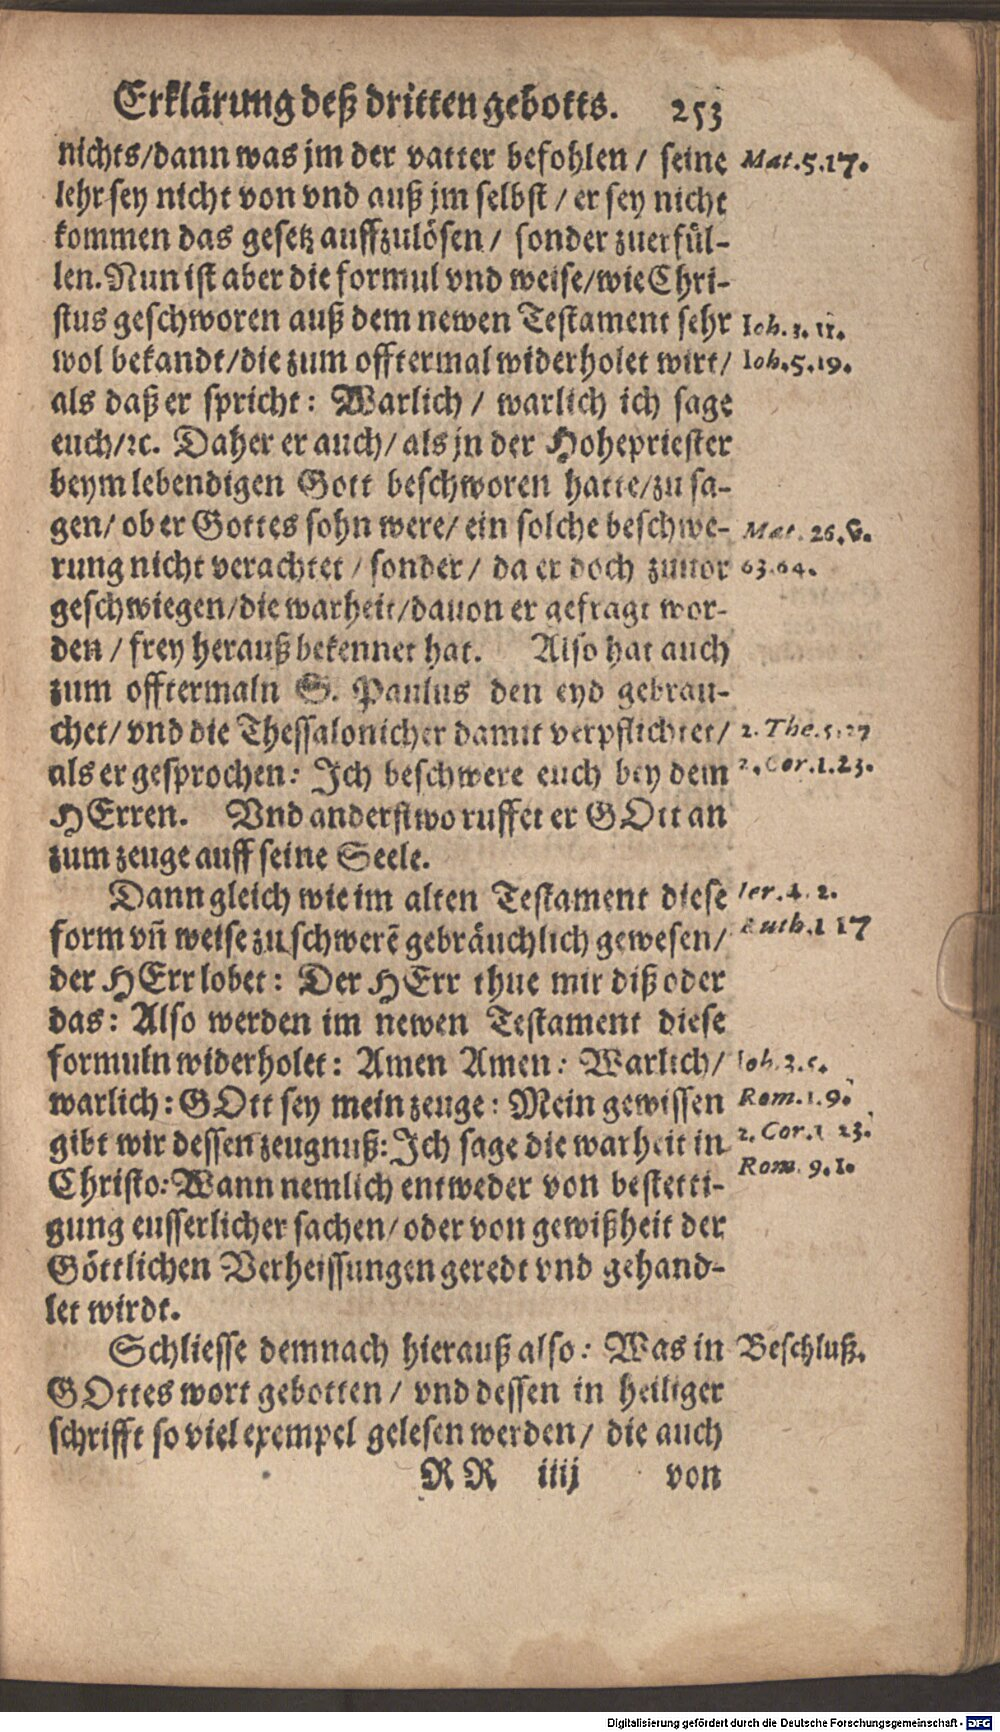 Erklärung deß dritten gebotts. 253
nichts/dann was jm der vatter befohlen/ seine Mat.5.17.
lehr sey nicht von vnd auß jm selbst/ er sey nicht
kommen das gesetz auffzulösen/ sonder zuerfül-
len. Nun ist aber die formul vnd weise/wie Chri-
stus geschworen auß dem newen Testament sehr Ioh.3.11.
wol bekandt/die zum offtermal widerholet wirt/ Ioh.5.19.
als daß er spricht: Warlich/ warlich ich sage
euch/ꝛc. Daher er auch/ als jn der Hohepriester
beym lebendigen Gott beschworen hatte/zu sa-
gen/ ob er Gottes sohn were/ ein solche beschwe- Mat. 26.
rung nicht verachtet/ sonder/ da er doch zuuor 63.64.
geschwiegen/die warheit/dauon er gefragt wor-
den/ frey herauß bekennet hat. Also hat auch
zum offtermaln S. Paulus den eyd gebrau-
chet/ vnd die Thessalonicher damit verpflichtet/ 1. The.5.27
als er gesprochen: Ich beschwere euch bey dem 2. Cor.1.23.
HErren. Vnd anderstwo ruffet er GOtt an
zum zeuge auff seine Seele.
Dann gleich wie im alten Testament diese Ier.4.2.
form vñ weise zu schwerē gebräuchlich gewesen/ Ruth.1 17
der HErr lobet: Der HErr thue mir diß oder
das: Also werden im newen Testament diese
formuln widerholet: Amen Amen: Warlich/ Ioh.3.5.
warlich: GOtt sey mein zeuge: Mein gewissen Rom.1.9.
gibt wir dessen zeugnuß: Ich sage die warheit in 2. Cor.1 23.
Christo: Wann nemlich entweder von bestetti- Rom. 9.1.
gung eusserlicher sachen/ oder von gewißheit der
Göttlichen Verheissungen geredt vnd gehand-
let wirdt.
Schliesse demnach hierauß also: Was in Beschluß.
GOttes wort gebotten/ vnd dessen in heiliger
schrifft so viel exempel gelesen werden/ die auch
RR iiij von
Digitalisierung gefördert durch die Deutsche Forschungsgemeinschaft - DFG